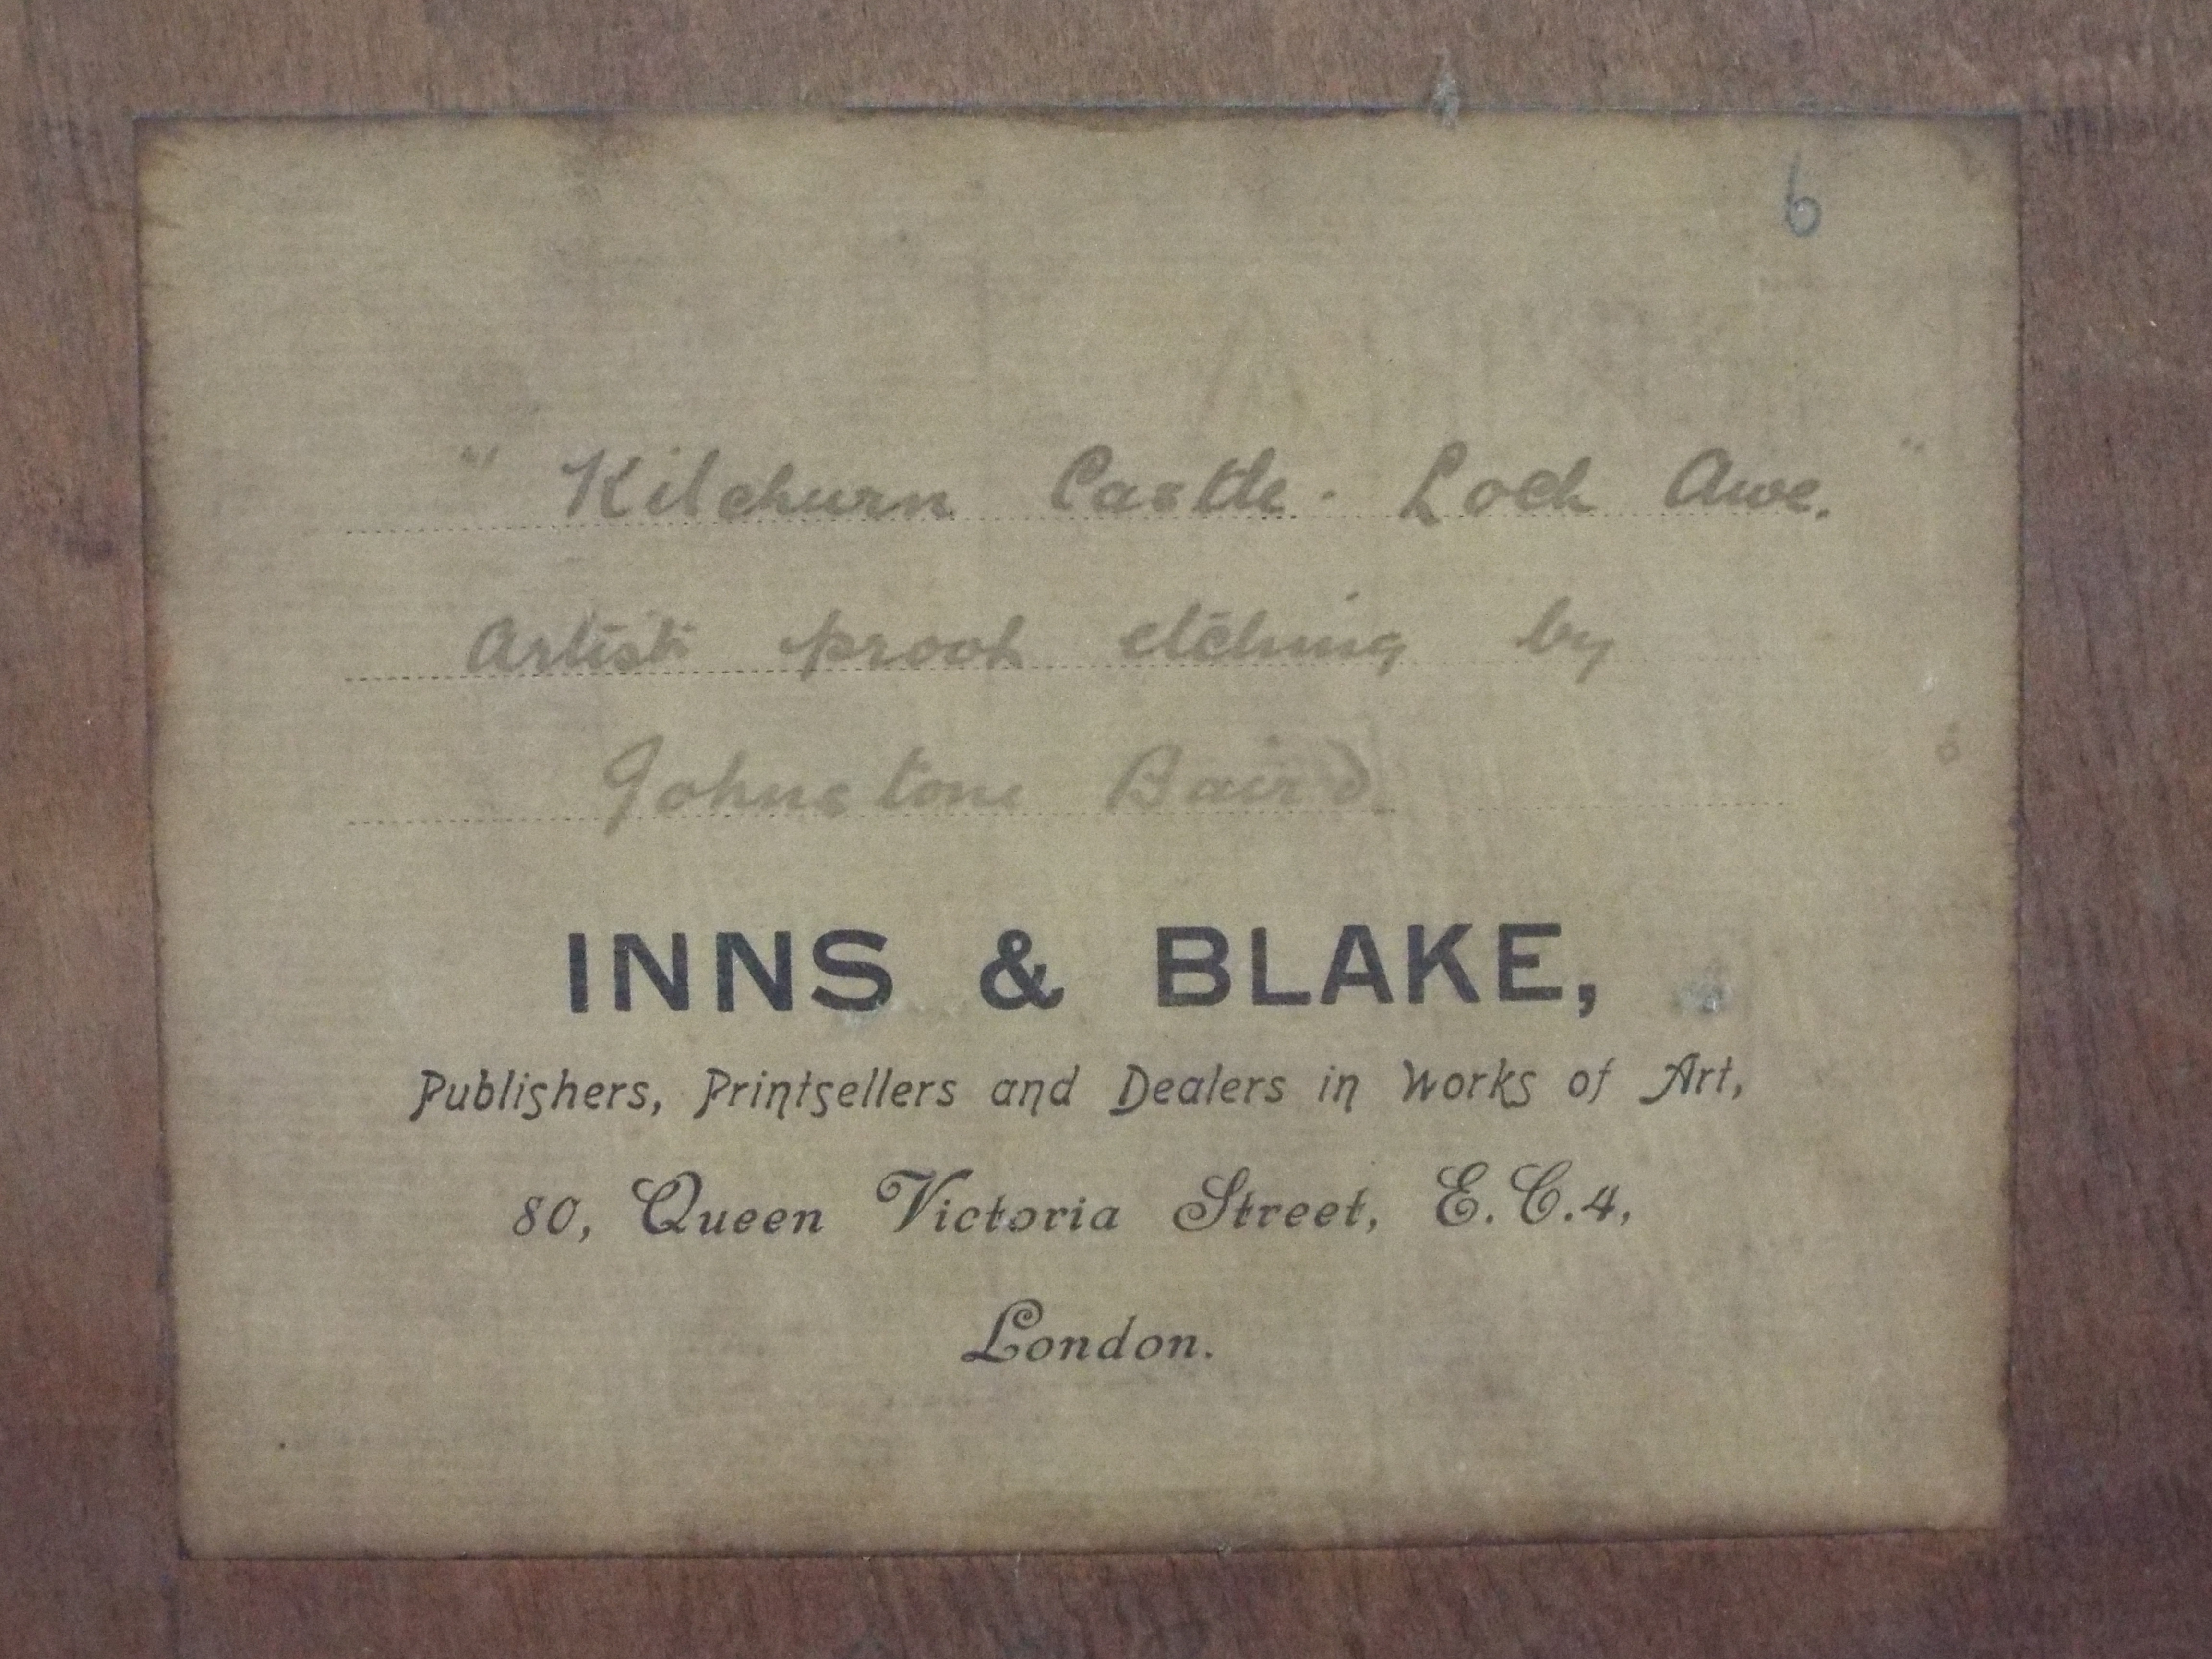 6
" Kilchurn Castle. Loch Awe. "
Artists proof etching by
Johnstone Baird
INNS & BLAKE,
Publishers, Printsellers and Dealers in Works of Art,
80, Queen Victoria Street, E.C.4,
London.